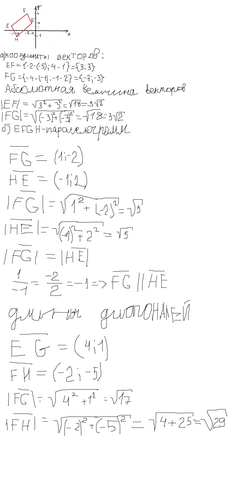 а) координаты векторов:
EF = {-2-(-5); 4-1} = {3; 3}
FG = {-4-(-1); -1-2} = {-3; -3}
Абсолютная величина векторов
|EF| = √3²+3² = √18 = 3√2
|FG| = √(-3)²+(-3)² = √18 = 3√2
б) EFGH-параллелограмм
FG = (1;-2)
HE = (-1;2)
|FG| = √1²+(-2)² = √5
|HE| = √(-1)²+2² = √5
|FG| = |HE|
1/-1 = -2/2 = -1 => FG || HE
длины диагоналей
EG = (4;1)
FH = (-2;-5)
|FG| = √4²+1² = √17
|FH| = √(-2)²+(-5)² = √4+25 = √29